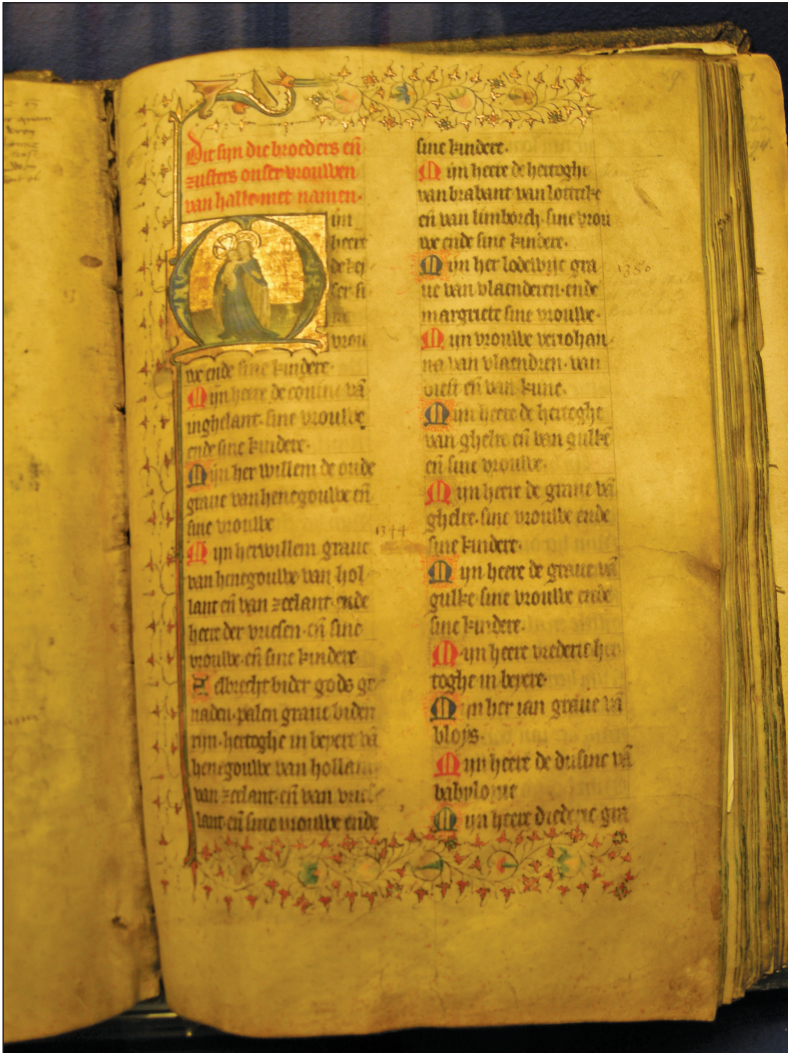 Dit sijn die broeders en̄
zusters onser vrouwen
van halle met namen·
ijn
heere
de kei
ser si
ne
vrou
we ende sine kindere·
Mijn heere de coninc vā
inghelant· sine vrouwe
ende sine kindere·
Mijn her willem de oude
grave van henegouwe en̄
sine vrouwe
Mijn her willem grave
van henegouwe van hol
lant en̄ van zeelant· ende
heere der vriesen· en̄ sine
vrouwe· en̄ sine kindere
Aelbrecht bider gods ge
naden· palen grave biden
rijn· hertoghe in beyere vā
henegouwe van hollant
van zeelant· en̄ van vries
lant en̄ sine vrouwe ende
sine kindere·
Mijn heere de hertoghe
van brabant van lottrike
en̄ van limborch· sine vrou
we ende sine kindere·
Mijn her lodewijc gra
ve van vlaenderen· ende
margriete sine vrouwe·
Mijn vrouwe veriohan
na van vlaendren· van
en̄ van
Mijn heere de hertoghe
van ghelre en̄ van gulke
en̄ sine vrouwe·
Mijn heere de grave vā
ghelre· sine vrouwe ende
sine kindere·
Mijn heere de grave vā
gulke sine vrouwe ende
sine kindere·
Mijn heere vrederic her
toghe in beyere·
Mijn her ian grave vā
bloys·
Mijn heere de
babylonie
Mijn heere diederic gra
1344
1350